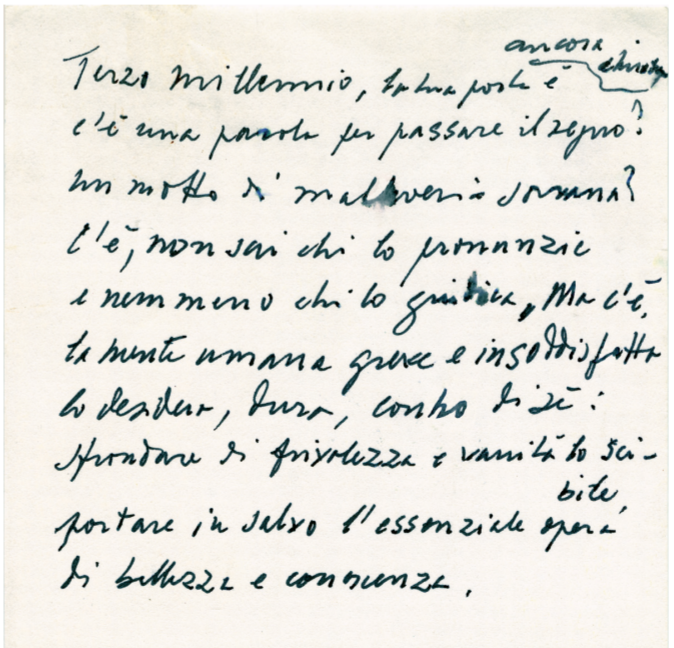 ancora chiusa
Terzo millennio, la tua porta è
c'è una parola per passare il segno?
un motto di malleveria sovrana?
C'è, non sai chi lo pronunzie
e nemmeno chi lo giudica, Ma c'è,
la mente umana greve e insoddisfatta
lo desidera, dura, contro di sé:
sfrondare di frivolezza e vanità lo sci-
bile,
portare in salvo l'essenziale opera
di bellezza e conoscenza.